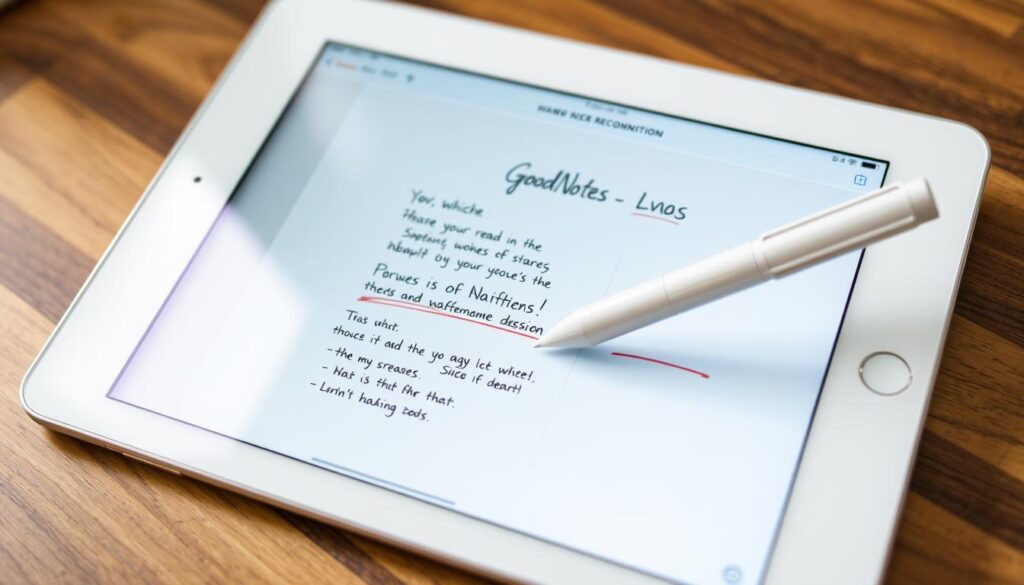 GoodNotes - Lnos
You, whiche
Thase your read in the
wokes of stares,
by your yooue's the
Porwes is of Naifttiens!
thets and waffemome dession
Tras whit.
thouce it aud the yo agy lct wheel,
-the my sreases. Suce if deart!
- Hat is thit fhr that.
- Lirin't haking zods.